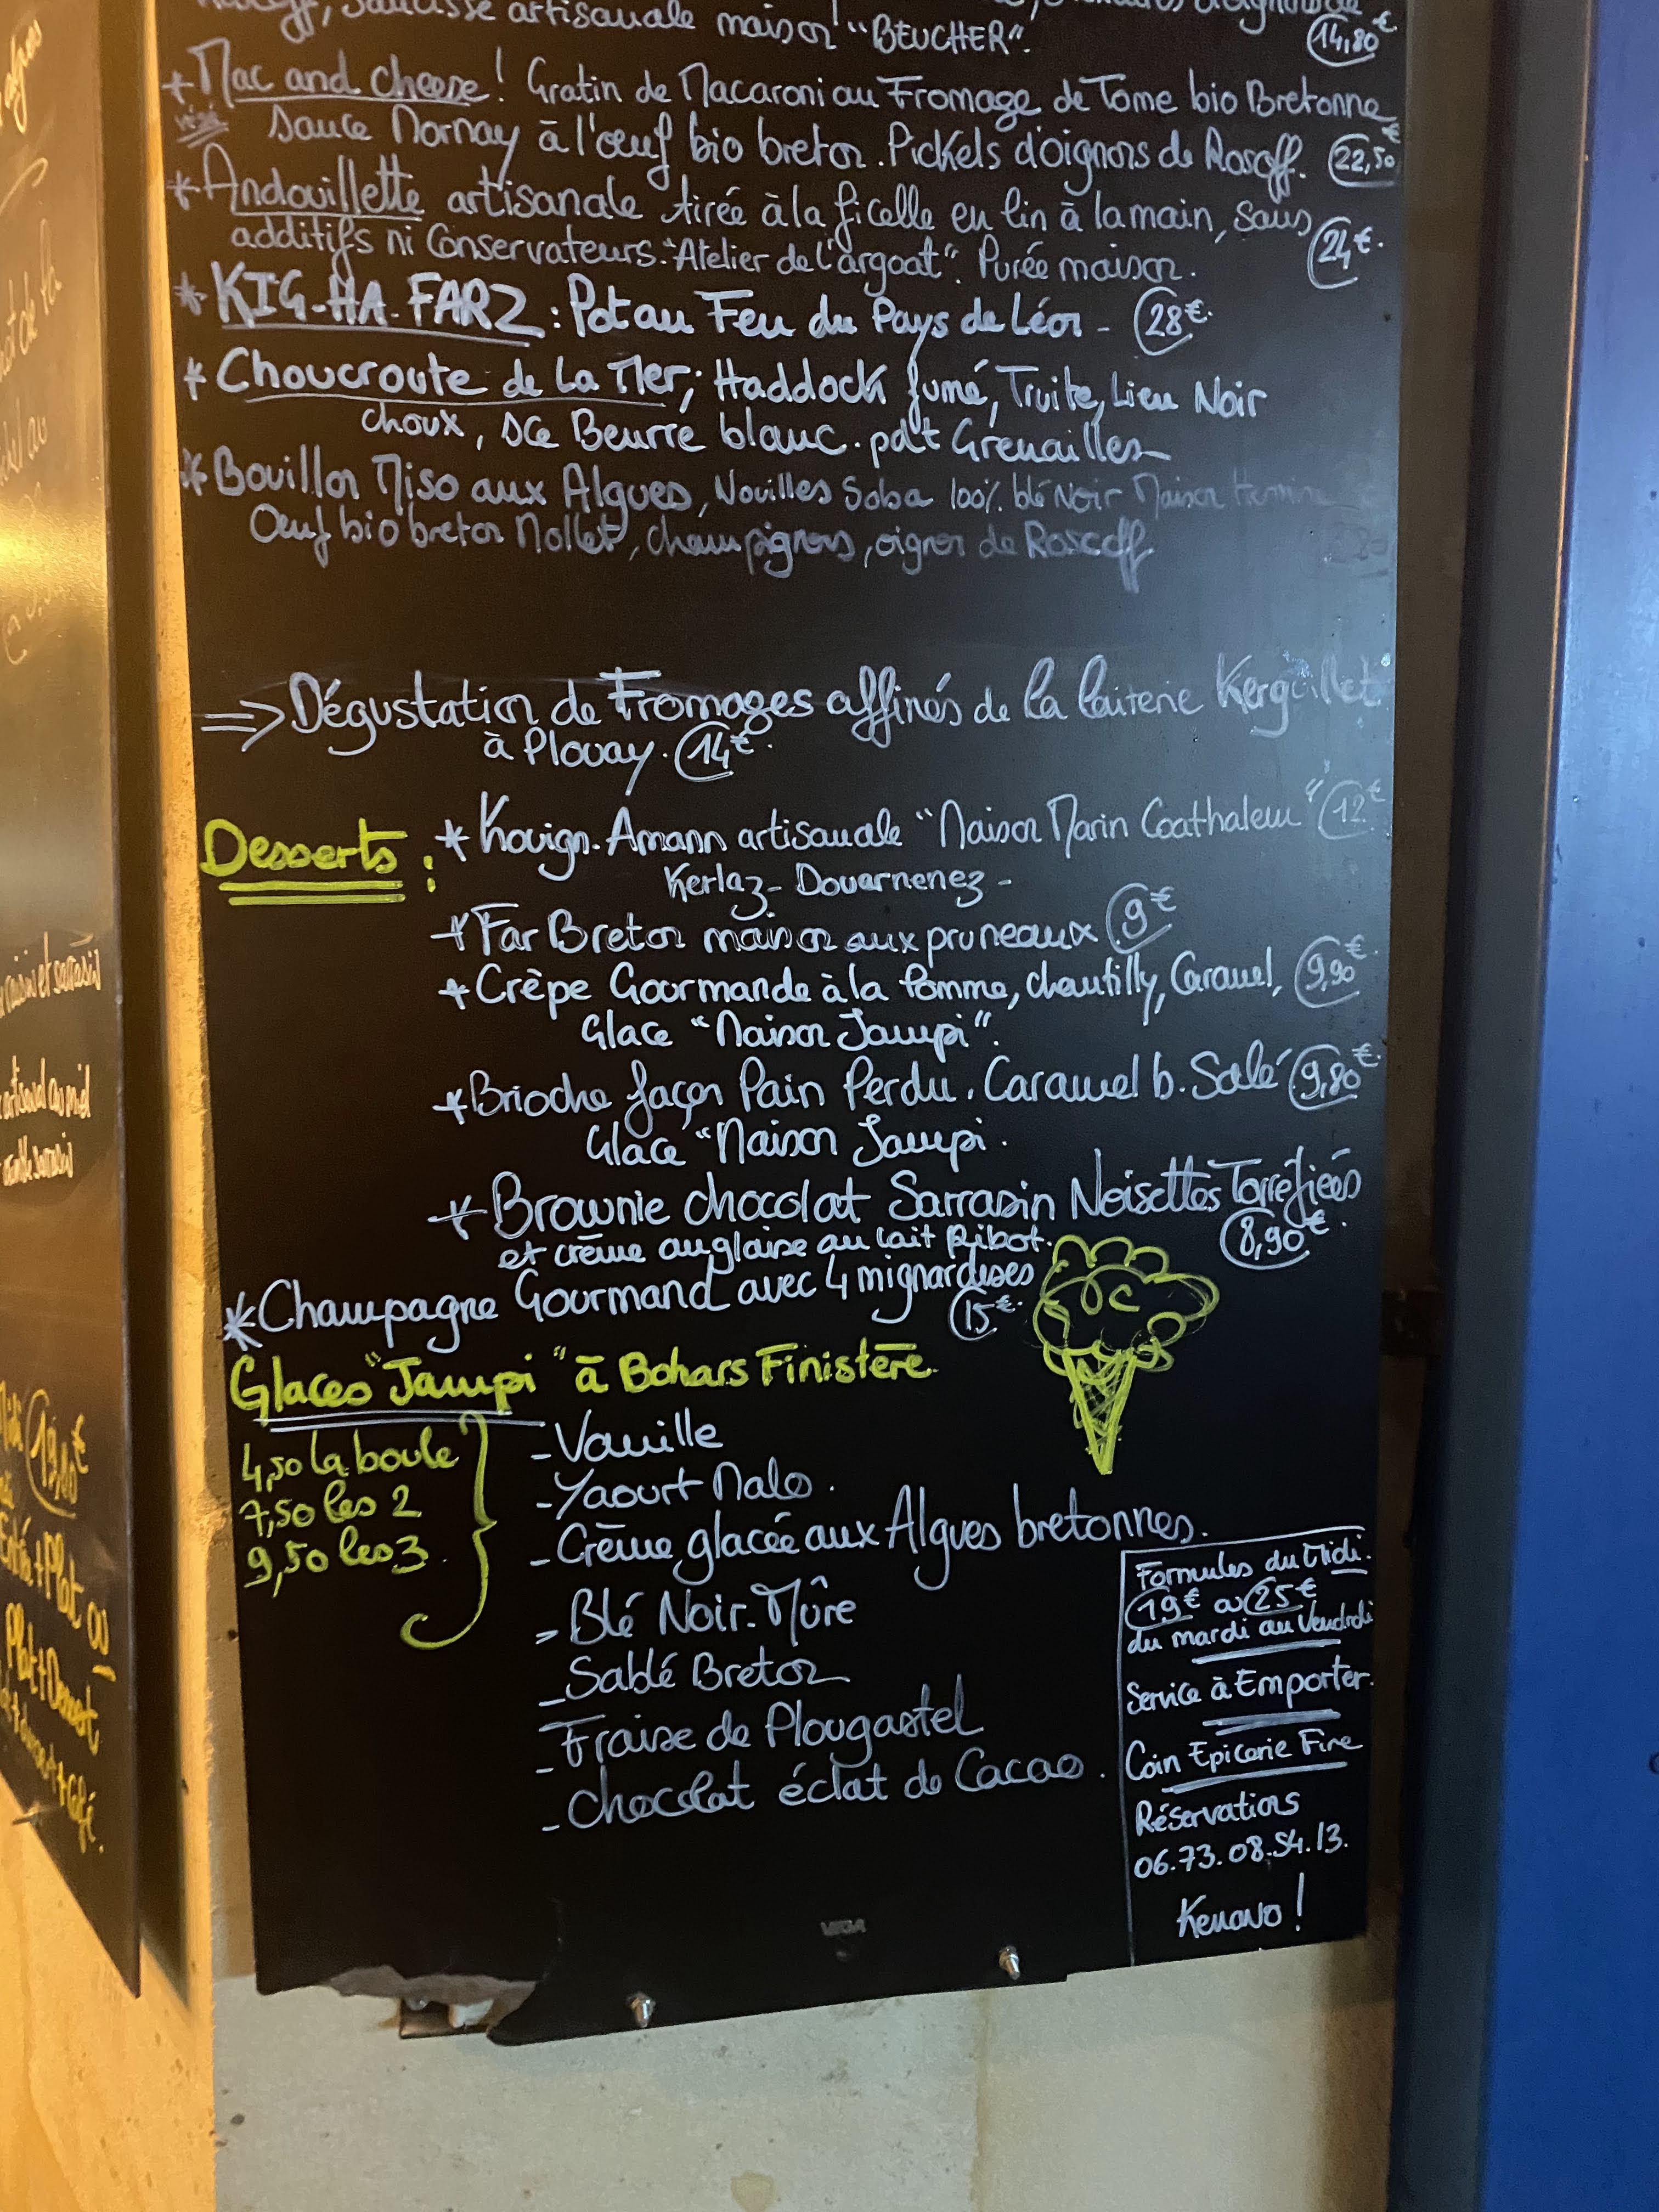 artisanale maison "BEUCHER". 14,80€
* Mac and cheese! Gratin de Macaroni au Fromage de Tome bio Bretonne
Sauce Mornay à l'œuf bio breton. Pickels d'oignons de Roscoff. 22,50€
* Andouillette artisanale tirée à la ficelle en lin à la main, sans
additifs ni Conservateurs. "Atelier de l'argoat". Purée maison. 24€.
* KIG-HA-FARZ : Pot au Feu du Pays de Léon - 28€.
* Choucroute de La Mer; Haddock fumé, Truite, Lieu Noir
choux, sce Beurre blanc. pdt Grenailles
* Bouillon Miso aux Algues, Nouilles Soba 100% blé Noir Maison
Œuf bio breton Mollet, champignons, oignon de Roscoff
=> Dégustation de Fromages affinés de la laiterie Kerguillet
à Plouay. 14€.
Desserts : * Kouign-Amann artisanale "Maison Marin Coathalem" 12€
Kerlaz - Douarnenez -
* Far Breton maison aux pruneaux 9€
* Crèpe Gourmande à la Pomme, chantilly, Caramel, 9,90€.
Glace "Maison Jampi".
* Brioche façon Pain Perdu. Caramel b. Salé 9,80€
Glace "Maison Jampi.
* Brownie chocolat Sarrasin Noisettes Torréfiées
et crème anglaise au lait Ribot. 8,90€.
* Champagne Gourmand avec 4 mignardises
15€.
Glaces "Jampi" à Bohars Finistère.
4,50 la boule
7,50 les 2
9,50 les 3.
- Vanille
- Yaourt Malo.
- Crème glacée aux Algues bretonnes.
- Blé Noir. Mûre
- Sablé Breton
- Fraise de Plougastel
- Chocolat éclat de Cacao.
Formules du Midi.
19€ ou 25€
du mardi au Vendredi
Service à Emporter.
Coin Epicerie Fine
Réservations
06.73.08.54.13.
Kenavo!
VIGA
19,80€
Entrée + Plat ou
Plat + Dessert